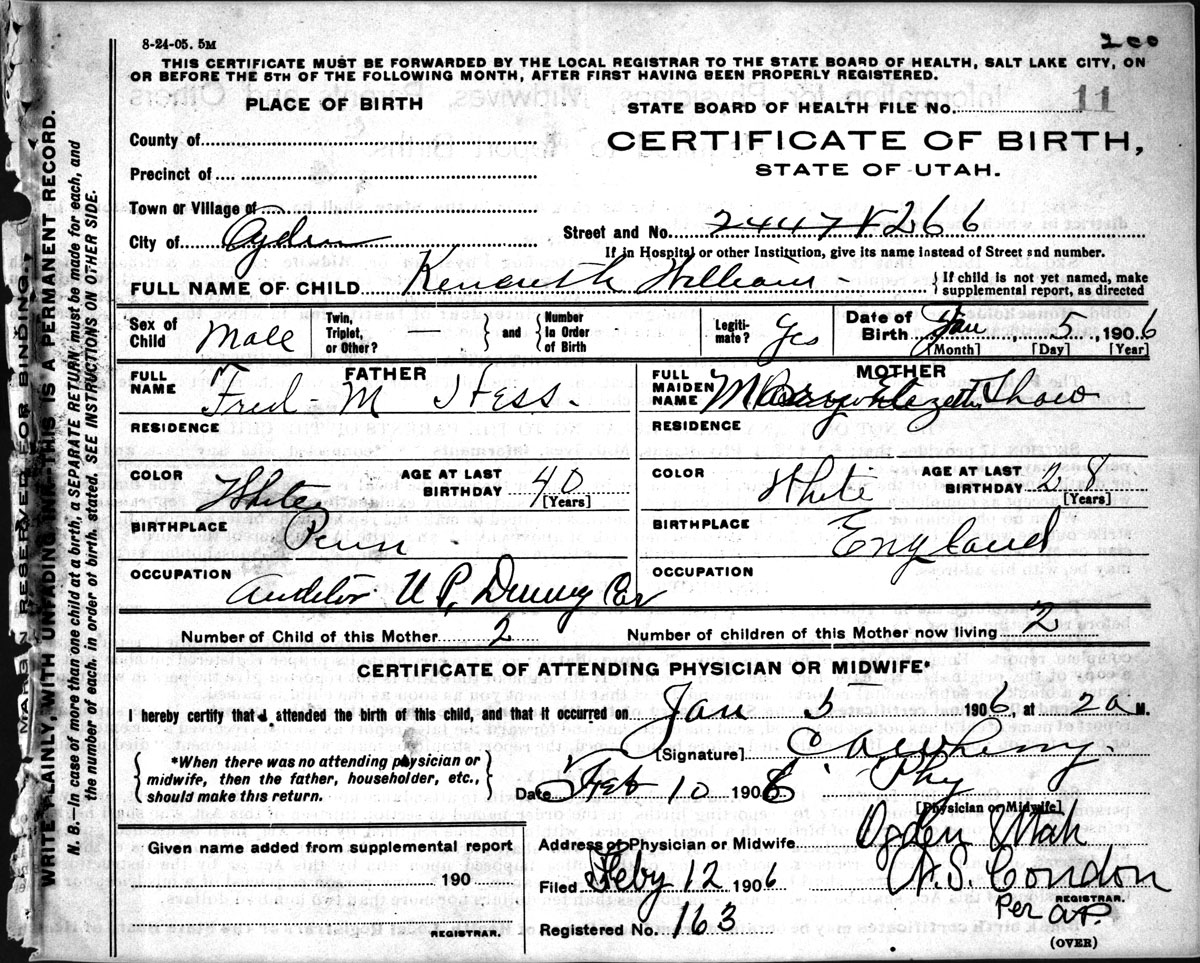 8-24-05. 5M
200
THIS CERTIFICATE MUST BE FORWARDED BY THE LOCAL REGISTRAR TO THE STATE BOARD OF HEALTH, SALT LAKE CITY, ON
OR BEFORE THE 5TH OF THE FOLLOWING MONTH, AFTER FIRST HAVING BEEN PROPERLY REGISTERED.
PLACE OF BIRTH
STATE BOARD OF HEALTH FILE No. 11
County of
CERTIFICATE OF BIRTH,
Precinct of
STATE OF UTAH.
Town or Village of
City of Ogden
Street and No. 2447 266
If in Hospital or other Institution, give its name instead of Street and number.
FULL NAME OF CHILD Kenneth William
{ If child is not yet named, make
supplemental report, as directed
Sex of Child Male
Twin, Triplet, or Other? —
{ and }
Number in Order of Birth
Legiti- mate? Yes
Date of Birth Jan 5, 1906
[Month] [Day] [Year]
FATHER
FULL NAME Fred - M Hess -
RESIDENCE
COLOR White
AGE AT LAST BIRTHDAY 40
[Years]
BIRTHPLACE Penn -
OCCUPATION Auditor U P, Car
MOTHER
FULL MAIDEN NAME Mary
RESIDENCE
COLOR White
AGE AT LAST BIRTHDAY 28
[Years]
BIRTHPLACE England
OCCUPATION
Number of Child of this Mother 2
Number of children of this Mother now living 2
CERTIFICATE OF ATTENDING PHYSICIAN OR MIDWIFE*
I hereby certify that I attended the birth of this child, and that it occurred on Jan 5 1906, at 2 a M.
{ *When there was no attending physician or
midwife, then the father, householder, etc.,
should make this return. }
[Signature]
Date Feb 10 1906
Phy
[Physician or Midwife]
Address of Physician or Midwife Ogden Utah
Filed Feby 12 1906
N. S. Condon
REGISTRAR.
Per A.P.
Registered No. 163
(OVER)
Given name added from supplemental report
190
REGISTRAR.
MARGIN RESERVED FOR BINDING.
WRITE PLAINLY, WITH UNFADING INK—THIS IS A PERMANENT RECORD.
N. B.—In case of more than one child at a birth, a SEPARATE RETURN must be made for each, and
the number of each, in order of birth, stated. SEE INSTRUCTIONS ON OTHER SIDE.